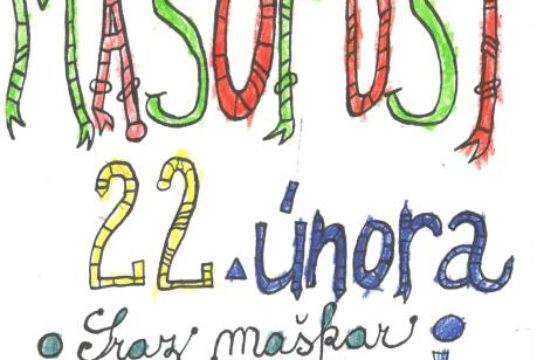 MASOPUST
22. února
Sraz maškar